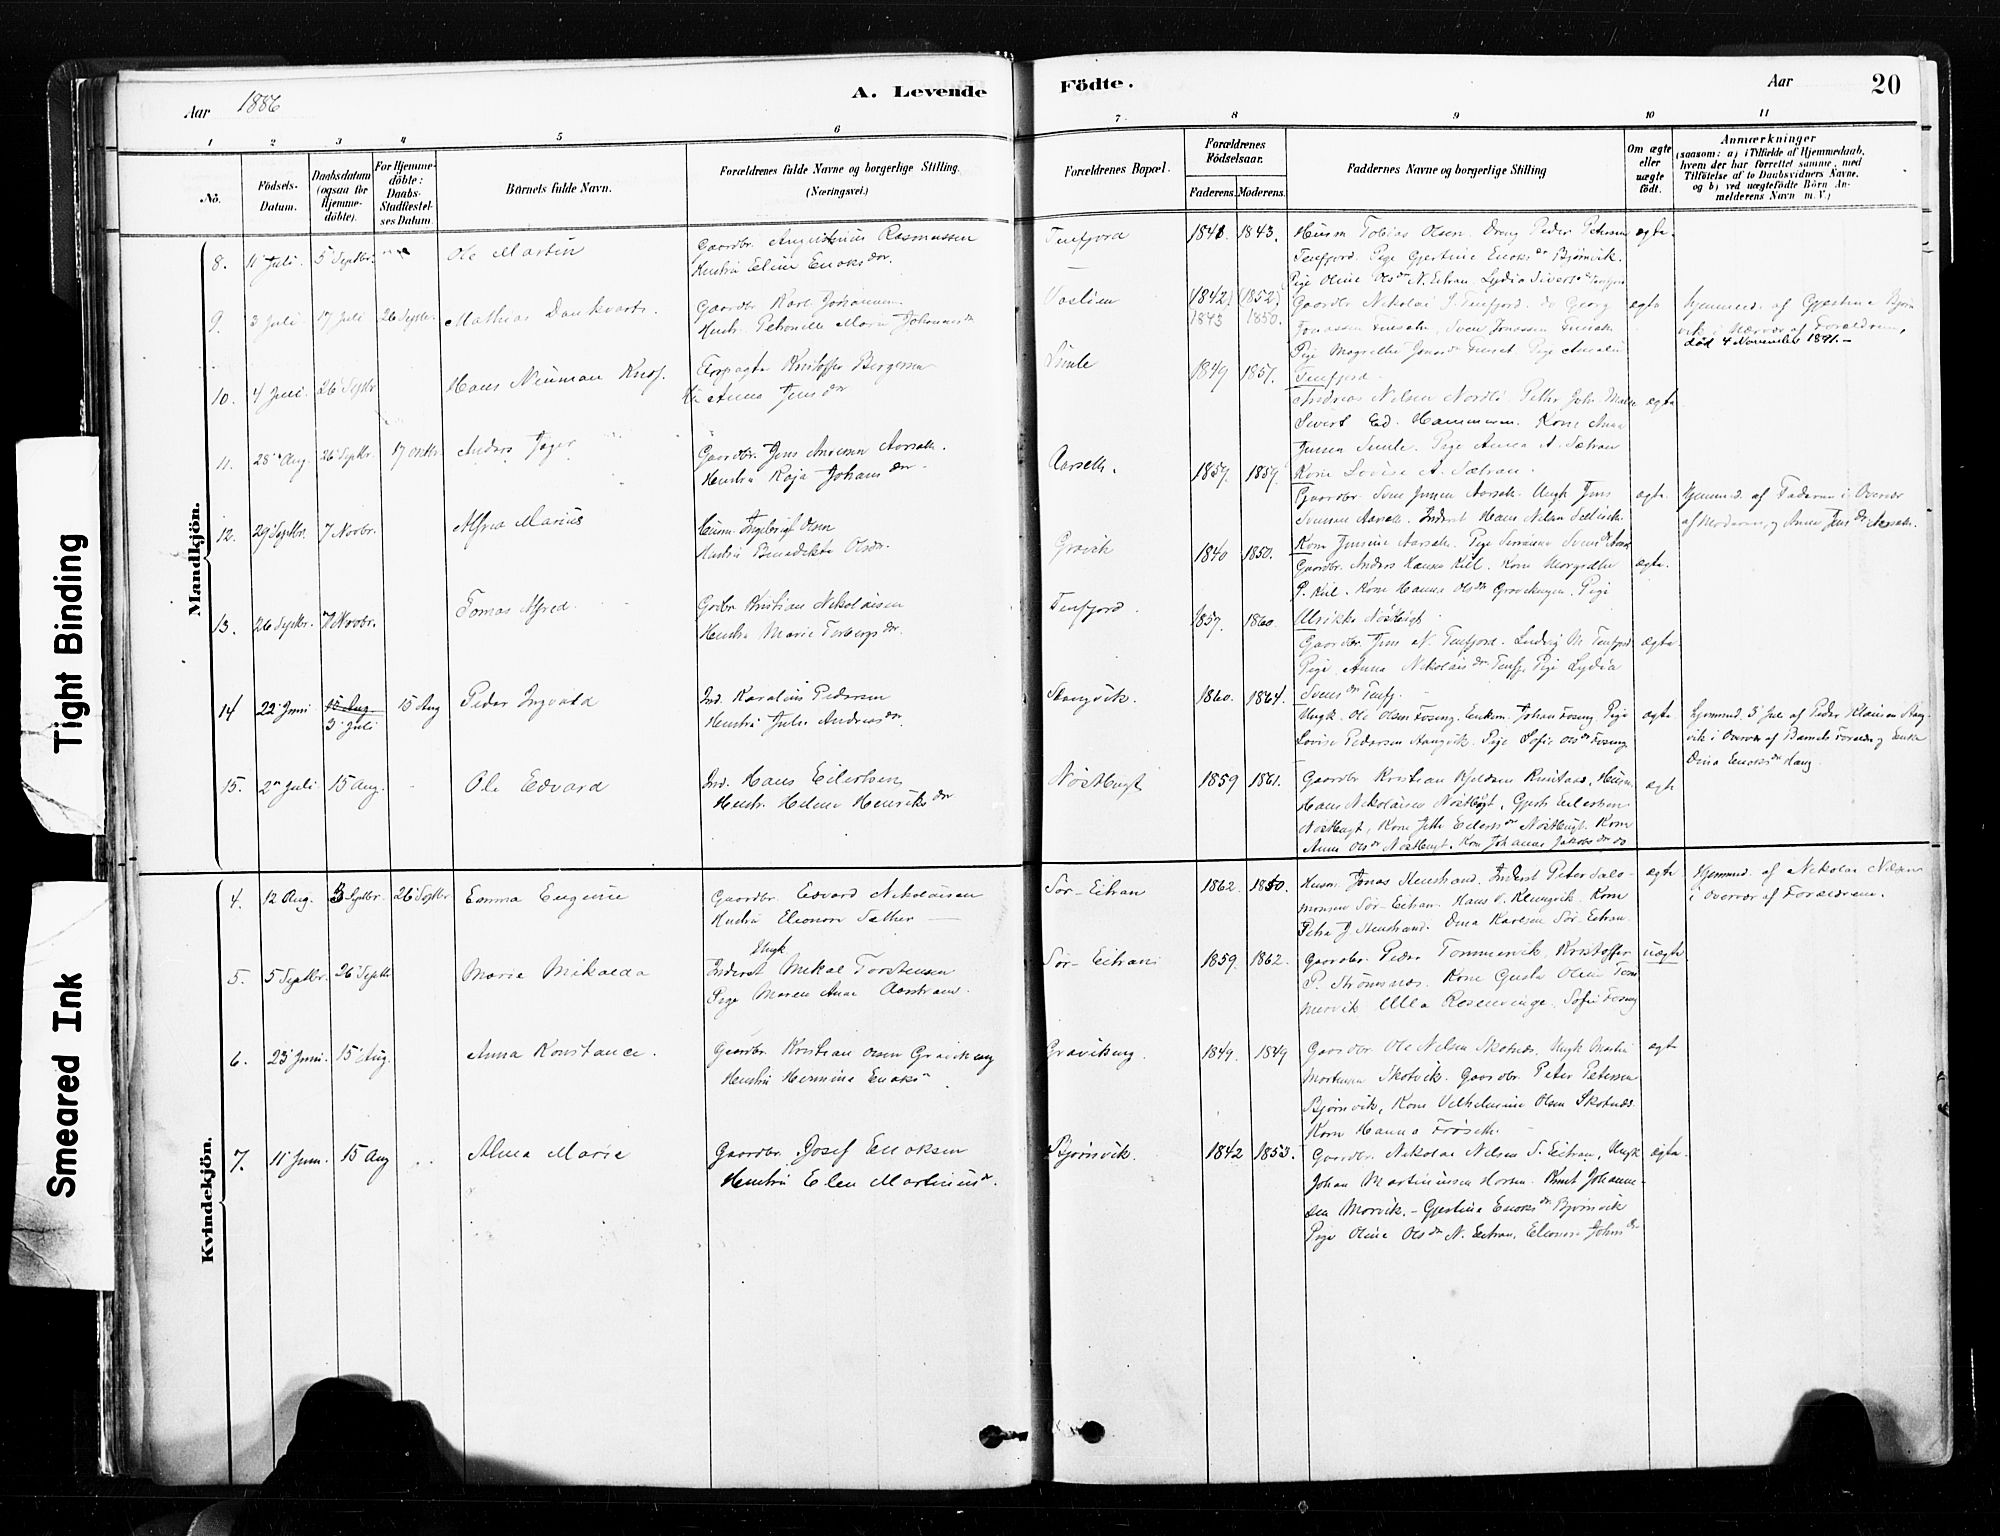 Tight Binding
Smeared Ink
Aar 1886
A. Levende
Födte.
Aar
20
1 2 3 4 5 6 7 8 9 10 11
Nö.
Födsels-
Datum.
Daabsdatum
(ogsaa for
Hjemme-
döbte).
For Hjemme-
döbte:
Daabs-
Stadfestel-
ses Datum.
Barnets fulde Navn.
Forældrenes fulde Navne og borgerlige Stilling.
(Næringsvei.)
Forældrenes Bopæl.
Forældrenes
Födselsaar.
Faderens.
Moderens.
Faddernes Navne og borgerlige Stilling
Om ægte
eller
uægte
födt.
Anmærkninger
(saasom: a) i Tilfælde af Hjemmedaab,
hvem der har forrettet samme, med
Tilföielse af to Daabsvidners Navne,
og b) ved uægtefödte Börn An-
melderens Navn m. V.)
Mandkjön.
8. 11 Juli. 5 Septbr. Ole Martin
Gaardbr. Augustinus Rasmussen
Hustru Eline Enoks dr.
Tenfjord 1843.
Husm Tobias Olsen. Dreng Peder Petersen
Tenfjord. Pige Gjertine Enoks dr Bjørnvik.
Pige Oline Ols dr N. Eitran Lydia Siverts dr
ægte.
9. 3 Juli 17 Juli 26 Septbr. Mathias Dankvart.
Gaardbr Karl Johannesen
Hustr. Petronelle Marie Johannes dr
(1842) (1852)
1843 1850.
Gaardbr Nikolai S. Tenfjord
ægte
Hjemmed. af Gjertine Bjørn
vik i Nærvær af Forældrene,
død 4 November 1891.
10. 4 Juni. 26 Septbr Hans Neuman Knof.
Kristoffer Bergersen
Anna Jens dr
1849 1857.
Tenfjord
Andreas Nilsen Nordli
Sivert Ed. Hammersen. Kone Anna
Jensen
ægte
11. 28 Aug. 26 Septbr. 17 Oktbr. Anders Jager
Gaardbr. Jens Andersen Aarseth.
Hustru Kaja Johans dr
Aarseth. 1859. 1859.
Kone Lovise A. Sætran.
Gaardbr. Sven Jensen Aarseth. Ungk Jens
Svensen Aarseth. Inderst Hans Nilsen
Kone Jensine Aarseth. Pige
ægte.
Hjemmed. af Faderen i Overvær
af Moderen, og Anne Jens dr Aarseth.
12. 29 Septbr. 7 Novbr. Alfred Marius
Husm. Ingebrigt Olsen
Hustru Benedikte Olsdr.
Gravik 1840 1850.
Gaardbr. Anders Hansen Kiil. Kone Margrethe
P. Kiil. Kone Hanna Ols dr Gravikeng. Pige
Ulrikke Nøstbugt
ægte.
13. 26 Septbr. 7 Novbr. Tomas Alfred.
Gdbr. Kristian Nikolaisen
Hustru Marie Torbergs dr.
Tenfjord. 1857. 1860.
Gaardbr. Jens N. Tenfjord. Ludvig M Tenfjord
Pige. Anna Nikolais dr Tenfj. Pige Lydia
Svens dr Tenfj.
ægte.
14 22 Juni 15 Aug
3 Juli
15 Aug Peder Ingvald
Ind. Karolius Pedersen
Hustru Julie Andreas dr.
1860. 1864.
Ungk. Ole Olsen Foseng. Enkem. Johan Foseng. Pige
Lovise Pedersen Pige Sofie Ols dr Foseng
ægte
Hjemmed. 3 Juli af Peder Klausen
vik i Overvær af Barnets Forældre og Enke
Dina Enoks dr Haug.
15. 2 Juli 15 Aug. Ole Edvard
Ind. Hans Eilertsen
Hustr. Helene Henriks dr
Nøstbugt 1859 1861.
Gaardbr Kristian Kjeldsen Knutsaas, Husm.
Hans Nikolaisen Nøstbugt, Gjert Eilertsen
Nøstbugt, Kone Jette Eilerts dr Nøstbugt. Kone
Anne Ols dr Nøstbugt. Kone Johanna Jakobs dr do
ægte
Kvindekjön.
4. 12 Aug. 3 Septbr 26 Septbr Emma Eugenie
Gaardbr. Edvard Nikolaisen
Hustru Eleonore Sæther
Sør-Eitran 1862. 1850.
Husm. Jonas Stenstrand. Inderst Peter Salo-
monsen Sør-Eitran. Hans O. Klungvik. Kone
Petra J Stenstrand. Dina Karlsen Sør-Eitran.
ægte
Hjemmed. af Nikolai Nilsen
i Overvær af Forældrene.
5. 5 Septbr. 26 Septbr Maria Mikalda
Ungk
Inderst Mekal Torstensen
Pige Maren Anna Aarstrand.
Sør-Eitran 1859. 1862.
Gaardbr. Peder Tommervik, Kristoffer
P. Strømsnes. Kone Gusta Olsen Tom
mervik Ulla Rosenvinge. Sofie Foseng
uægte
6. 23 Juni. 15 Aug. Anna Konstance.
Gaardbr. Kristian Olsen Gravikeng
Hustru Hermina Enoks dr
Gravikeng. 1849. 1849
Gaardbr. Ole Nilsen Skotnes. Ungk Martin
Mortensen Skotvik. Gaardbr. Peter Petersen
Bjørnvik, Kone Vilhelmine Olsen Skotnes.
Kone Hanna Frøseth.
ægte
7. 11 Juni. 15 Aug Alma Marie
Gaardbr. Josef Enoksen
Hustru Elen Martinius dr.
Bjørnvik. 1842 1853.
Gaardbr. Nikolai Nilsen S. Eitran, Ungk
Johan Martinussen Horsen. Knut Johanne-
sen Morvik. - Gjertine Enoks dr Bjørnvik
Pige Oline Ols dr N. Eitran, Eleonore Johns dr
ægte.